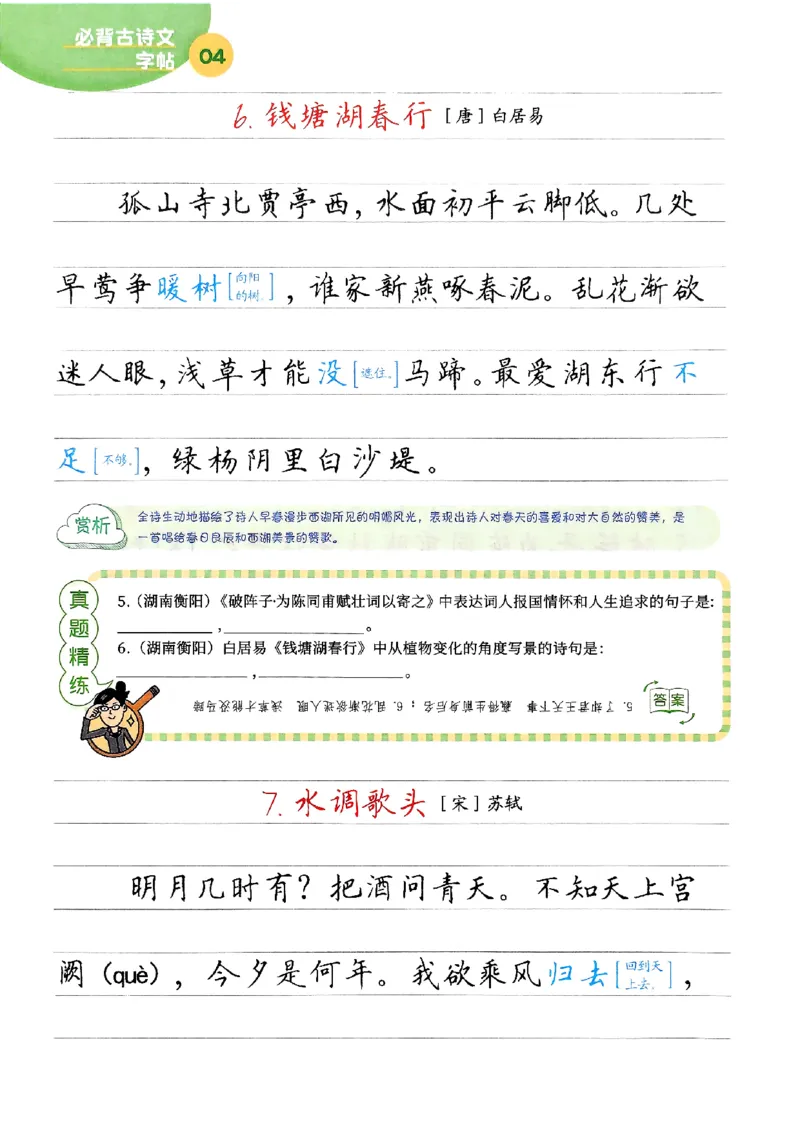 必背古诗文
字帖 04
6. 钱塘湖春行 [唐] 白居易
孤山寺北贾亭西，水面初平云脚低。几处
早莺争暖树[向阳的树。]，谁家新燕啄春泥。乱花渐欲
迷人眼，浅草才能没[遮住。]马蹄。最爱湖东行不
足[不够。]，绿杨阴里白沙堤。
赏析
全诗生动地描绘了诗人早春漫步西湖所见的明媚风光，表现出诗人对春天的喜爱和对大自然的赞美，是
一首唱给春日良辰和西湖美景的赞歌。
真题精练
5.（湖南衡阳）《破阵子·为陈同甫赋壮词以寄之》中表达词人报国情怀和人生追求的句子是：
____________，__________________。
6.（湖南衡阳）白居易《钱塘湖春行》中从植物变化的角度写景的诗句是：
__________________，__________________。
答案
5. 了却君王天下事 赢得生前身后名；6. 乱花渐欲迷人眼 浅草才能没马蹄
7. 水调歌头 [宋] 苏轼
明月几时有？把酒问青天。不知天上宫
阙（què），今夕是何年。我欲乘风归去[回到天上去。]，